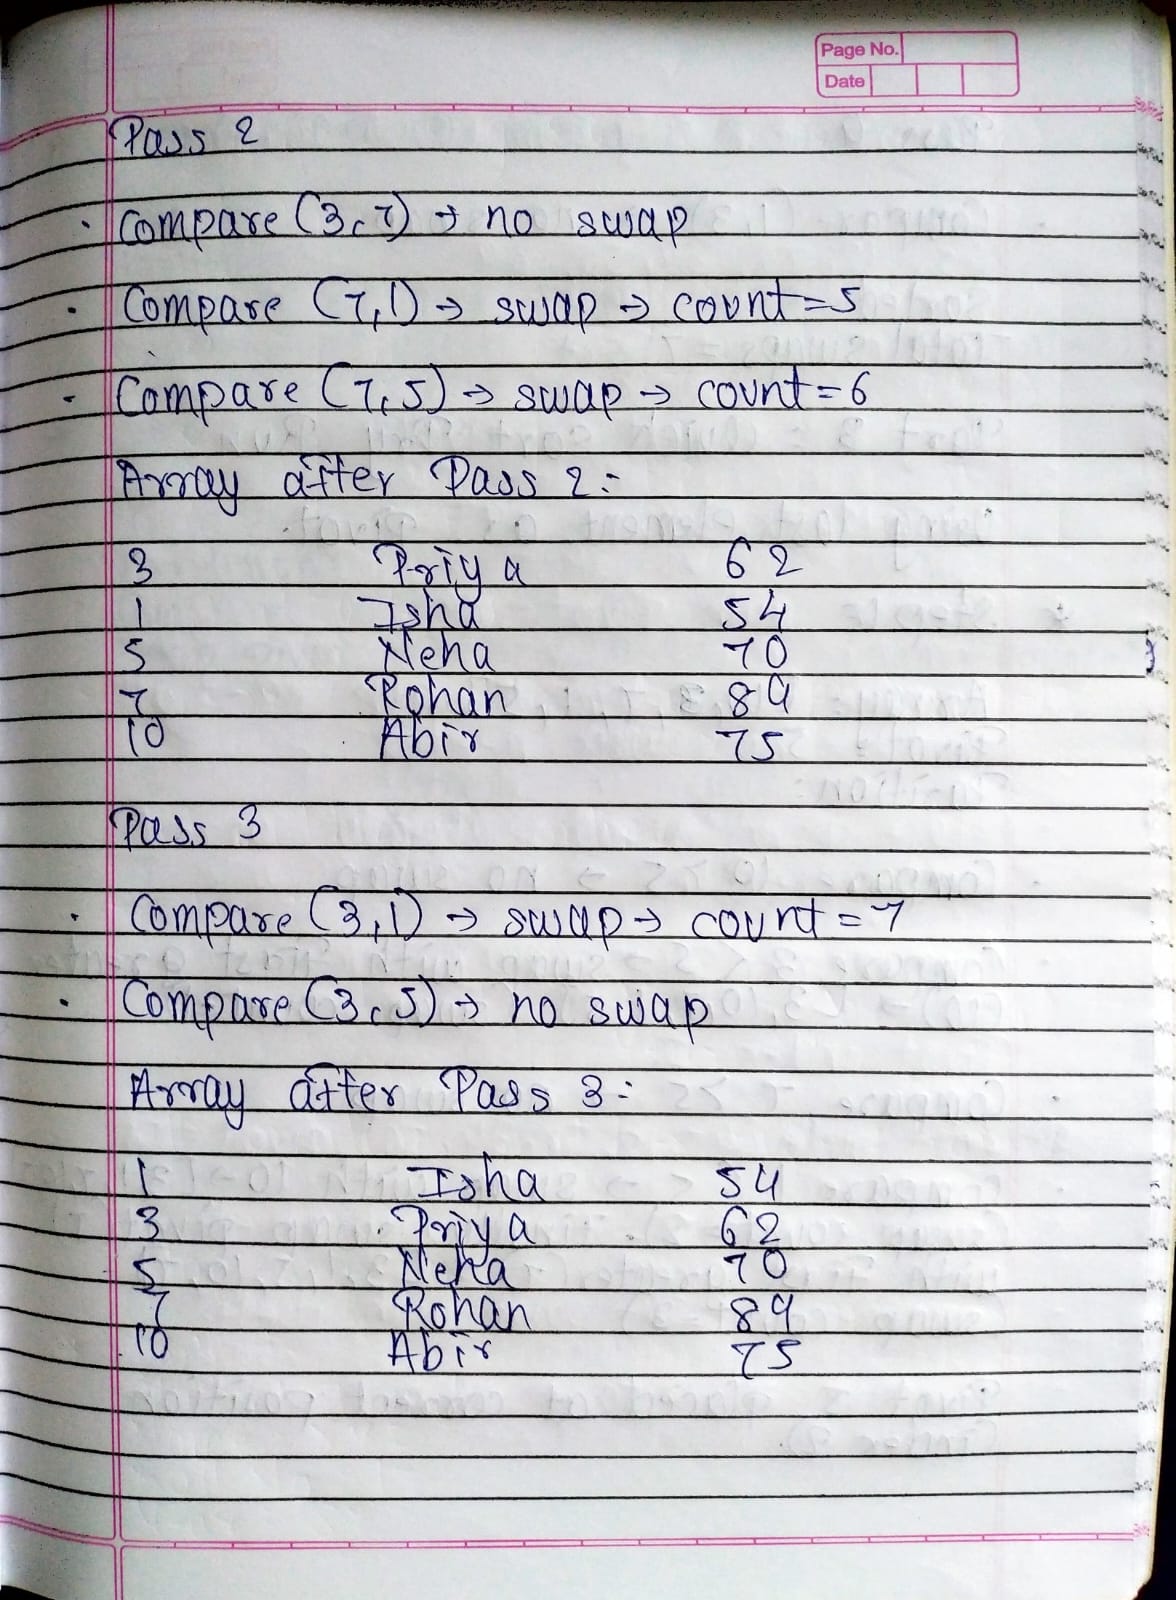 Page No.
Date
Pass 2
· Compare (3, 7) → no swap
· Compare (7, 1) → swap → count = 5
· Compare (7, 5) → swap → count = 6
Array after Pass 2 :-
3 Priya 62
1 Isha 54
5 Neha 70
7 Rohan 89
10 Abir 75
Pass 3
· Compare (3, 1) → swap → count = 7
· Compare (3, 5) → no swap
Array after Pass 3 :-
1 Isha 54
3 Priya 62
5 Neha 70
7 Rohan 89
10 Abir 75